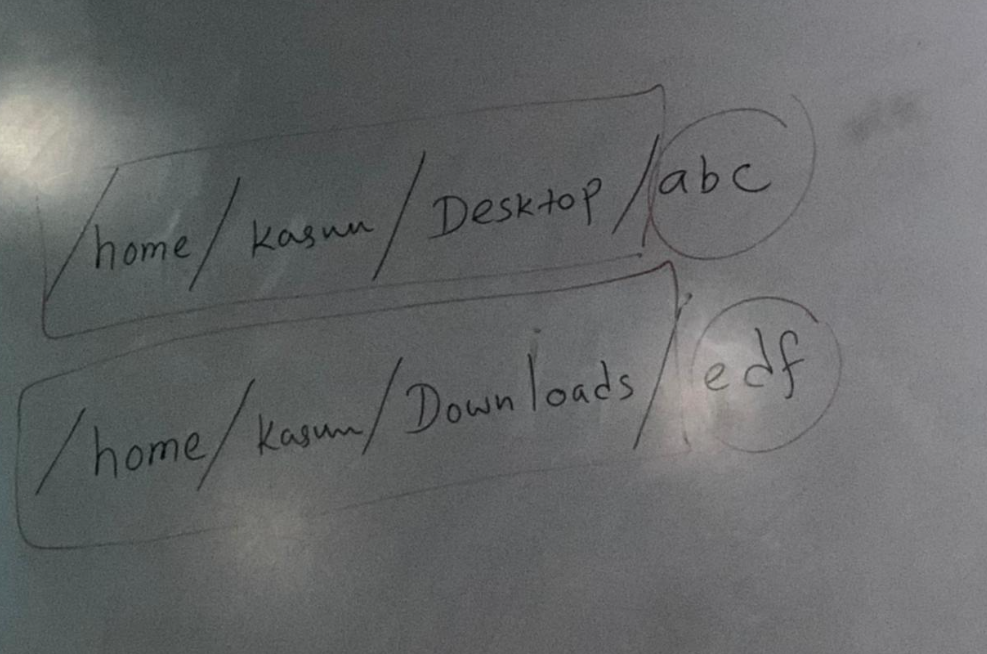 /home/kasun/Desktop/abc
/home/kasun/Downloads/edf